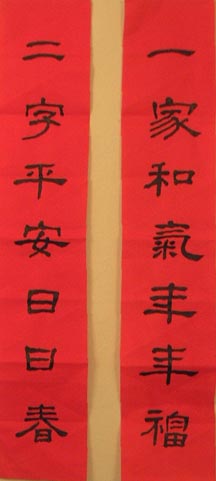 一家和氣年年福
二字平安日日春